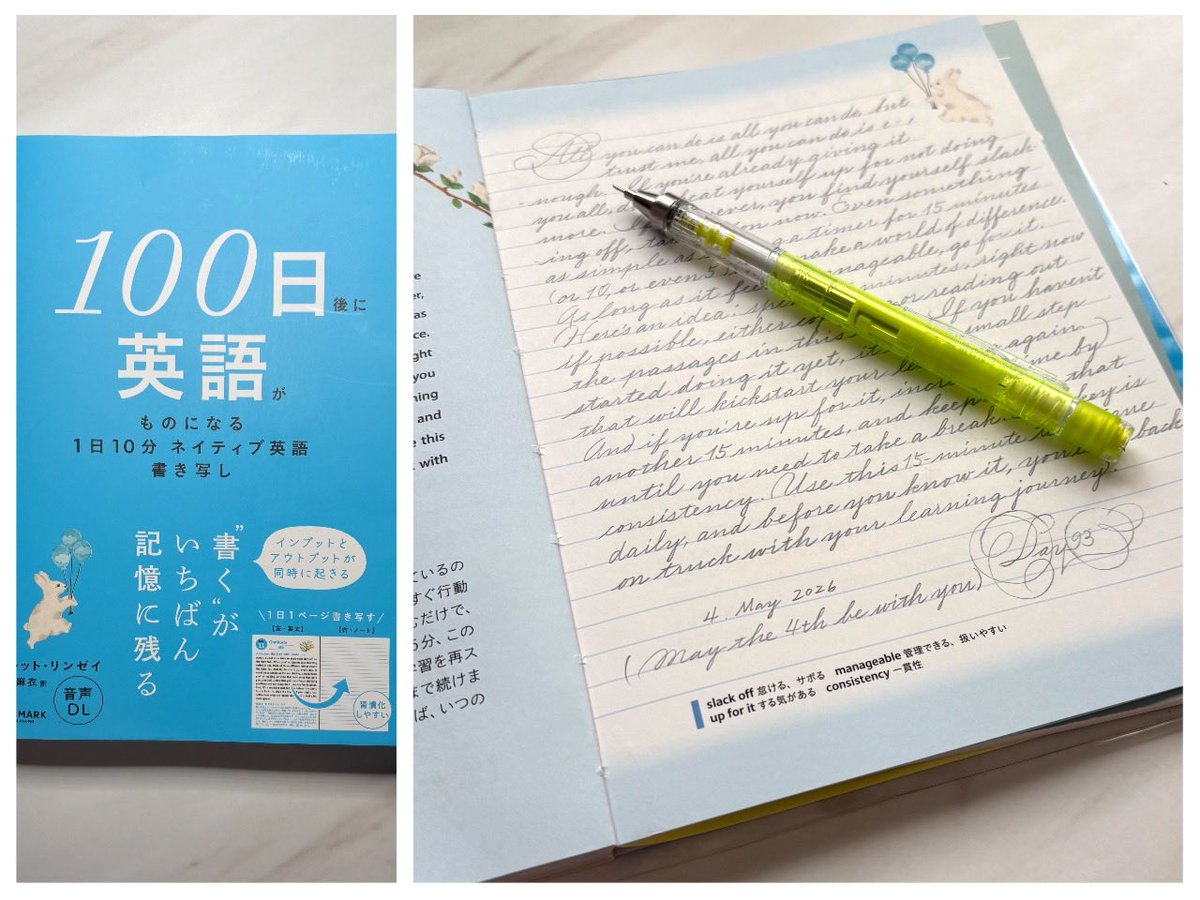 100日後に
英語が
ものになる
1日10分 ネイティブ英語
書き写し
"書く"が
いちばん
記憶に残る
インプットと
アウトプットが
同時に起きる
\1日1ページ書き写す/
【左・英文】 【右・ノート】
習慣化
しやすい
レット・リンゼイ
麻衣 訳
音声
DL
MARK
All you can do is all you can do, but
trust me, all you can do is e-
nough. If you're already giving it
you all, beat yourself up for not doing
more. ever, you find yourself slack-
ing off, on now. Even something
as simple as g a timer for 15 minutes
(or 10, or even 5 make a world of difference.
As long as it fee manageable, go for it.
Here's an idea. minutes, right now
if possible, either or reading out
the passages in this If you haven't
started doing it yet, it small step
that will kickstart your again.
And if you're up for it, me by
another 15 minutes, and keep that
until you need to take a break. key is
consistency. Use this 15-minute
daily, and before you know it, you back
on truck with your learning journey.
Day 93
4. May 2026
(May the 4th be with you)
slack off 怠ける、サボる manageable 管理できる、扱いやすい
up for it する気がある consistency 一貫性
e
er,
as
ce.
ght
you
ning
and
e this
with
ているの
すぐ行動
むだけで、
5分、この
学習を再ス
まで続けま
ば、いつの